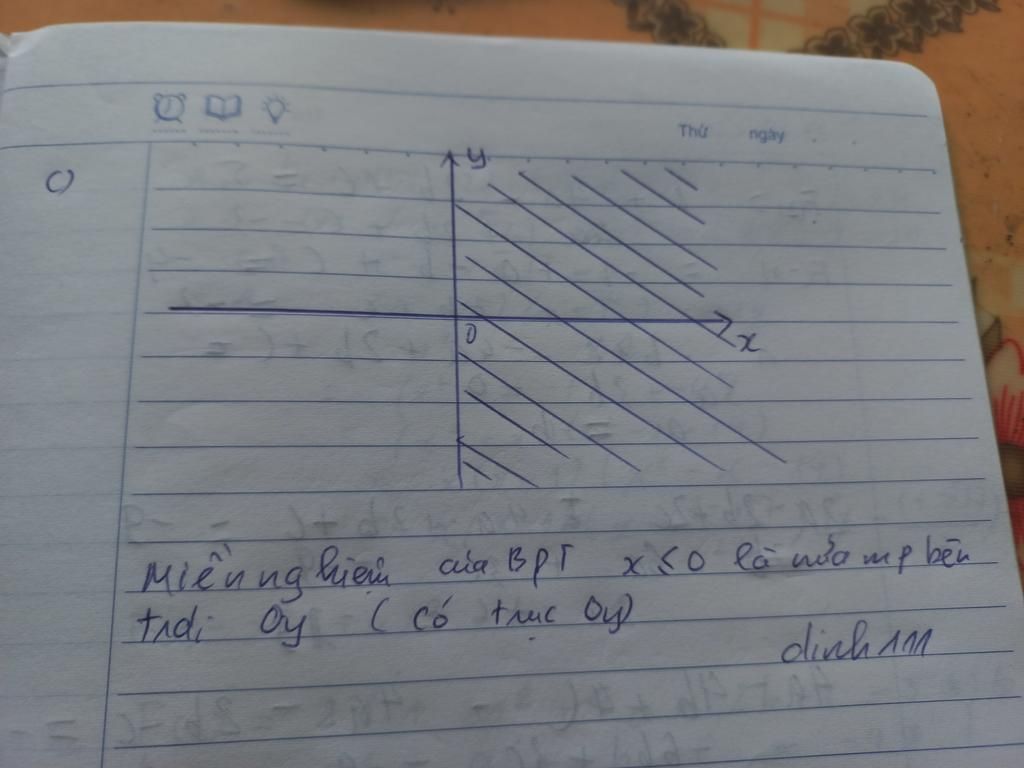 Thứ ngày
c)
y
0
x
Miền nghiệm của BPT x ≤ 0 là nửa mp bên
trái Oy (có trục Oy)
dinh111